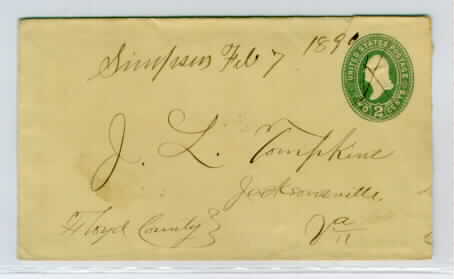 Simpson Feb 7 189
UNITED STATES POSTAGE
TWO 2 CENTS
J. L. Tompkins
Jacksonville,
Floyd County
Va